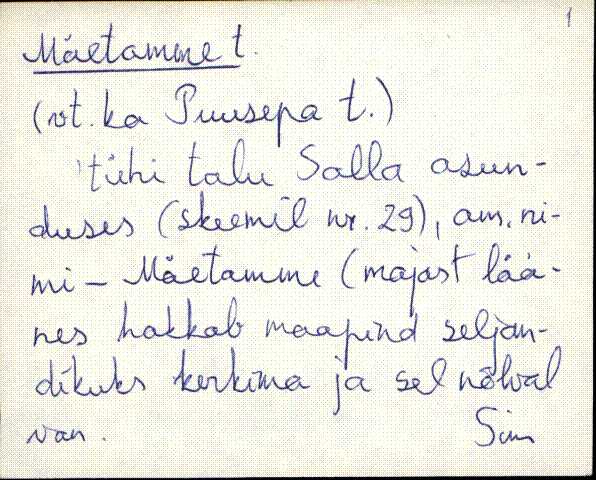 1
Mäetamme t.
(vt. ka Puusepa t.)
tühi talu Salla asun-
duses (skeemil nr. 29), am. ni-
mi - Mäetamme (majast lää-
nes hakkab maapind seljan-
dikuks kerkima ja sel nõlval
van.